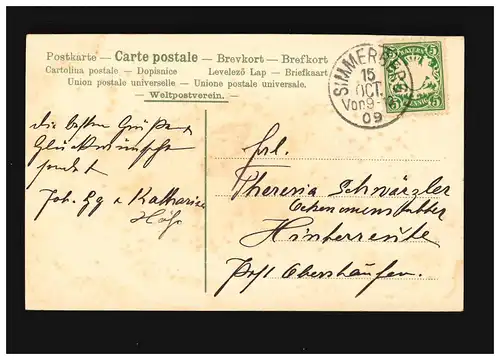 Postkarte — Carte postale — Brevkort — Brefkort
Cartolina postale — Dopisnice — Levelező Lap — Briefkaart
Union postale universelle — Unione postale universale.
— Weltpostverein. —
SIMMERBERG
15
OCT.
Vor.9-
09
BAYERN
5 5
PFENNIG
die besten Grüße &
Glückwünsche
sendet
Joh. Gg & Katharina
Frl.
Theresia Schwärzler
Hinterreute
Post Oberstaufen.